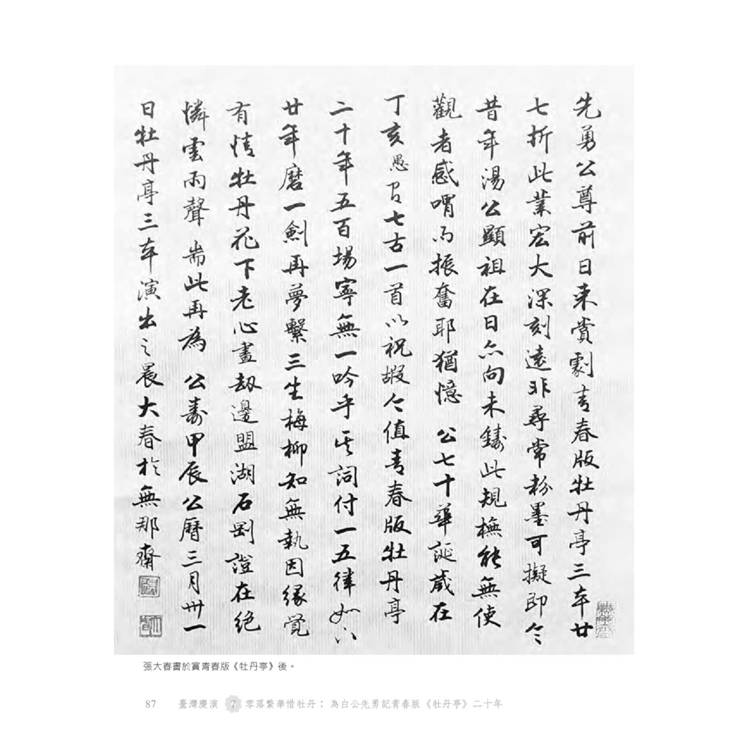 先勇公尊前日来賞劇青春版牡丹亭三本廿
七折此業宏大深刻遠非尋常粉墨可擬即令
昔年湯公顯祖在日亦向未鑄此規橅能無使
觀者感喟而振奮耶猶憶 公七十華誕歲在
丁亥愚有七古一首以祝嘏今值青春版牡丹亭
二十年五百場寧無一吟乎 詞付一五律如下
廿年磨一劍再夢繫三生梅柳知無執因緣覺
有情牡丹花下老心畫劫邊盟湖石 證在絕
憐雲雨聲 耑此再為 公壽甲辰公曆三月卅一
日牡丹亭三本演出之晨大春於無那齋
張大春書於賞青春版《牡丹亭》後。
87 臺灣慶演 7 零落繁華惜牡丹：為白公先勇記青春版《牡丹亭》二十年